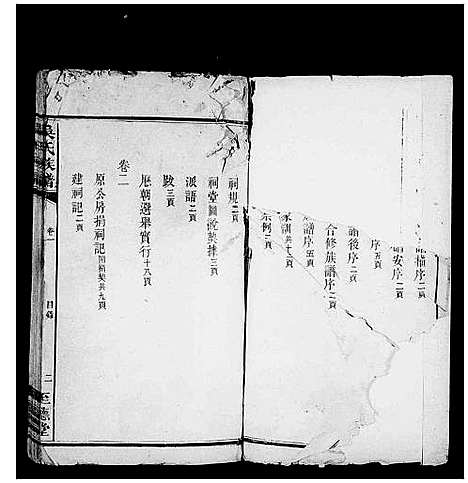 橫序二頁
安序二頁
序五頁
後序二頁
合修族譜序二頁
譜序五頁
家訓共十三頁
宗例二頁
祠規二頁
祠堂圖說契據三頁
派語二頁
跋三頁
卷二
歷朝選舉實行十八頁
原公房捐祠記共九頁
建祠記二頁
吳氏族譜
卷一
目錄
二
至德堂